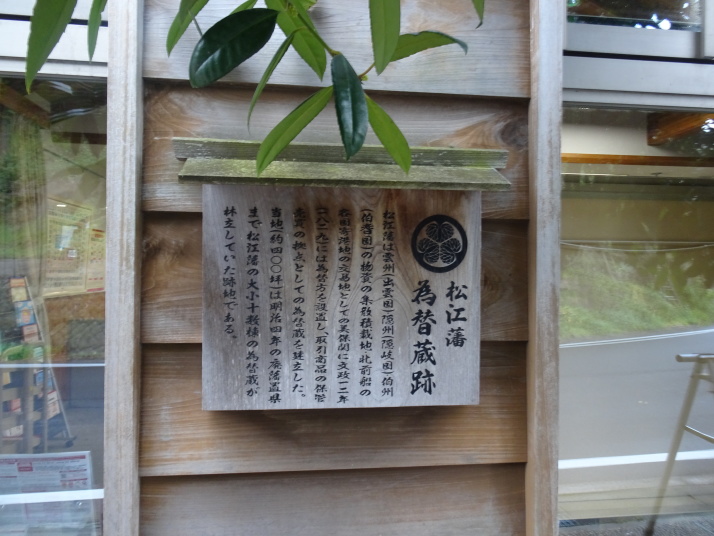 松江藩
為替蔵跡
松江藩は雲州(出雲国)隠州(隠岐国)伯州
(伯耆国)の物資の集散積載地、北前船の
松田寄港地の交易地としての美保関に文政一二年
(一八二九)には為替方を設置し、取引商品の保管
売買の拠点としての為替蔵を建立した。
当地(約四〇〇坪)は明治四年の廃藩置県
まで松江藩の大小十数棟の為替蔵が
林立していた跡地である。